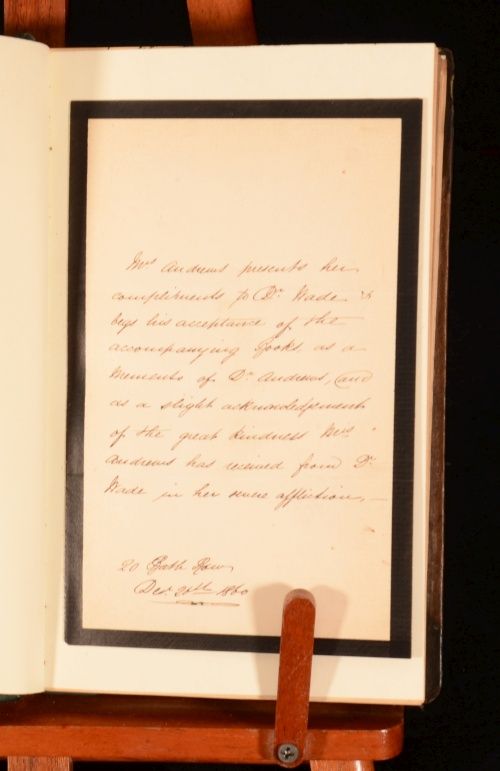 Mrs Andrews presents her
compliments to Dr Wade &
begs his acceptance of the
accompanying Books, as a
Memento of Dr Andrews, and
as a slight acknowledgement
of the great kindness Mrs
Andrews has received from Dr
Wade in her severe affliction, —
20 Bath Row
Decr 20th 1860